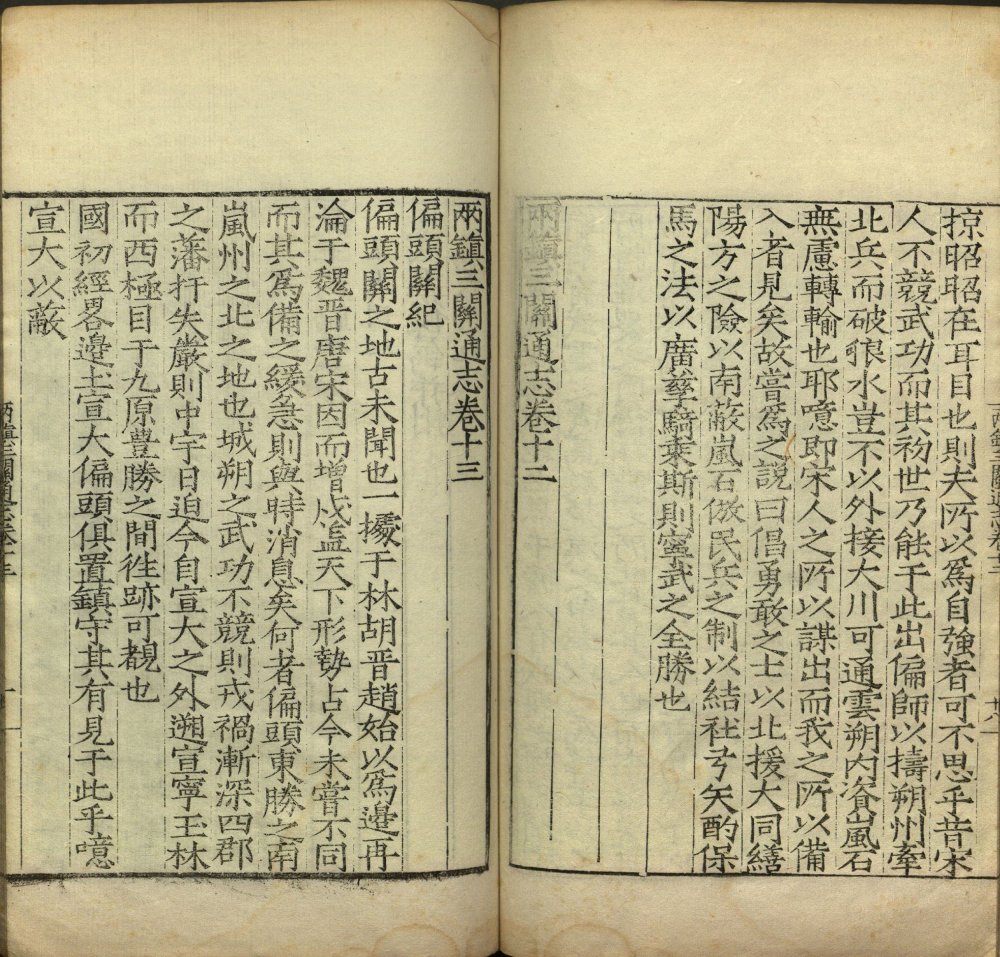 掠昭昭在耳目也則夫所以爲自強者可不思乎昔宋
人不競武功而其初世乃能于此出偏師以擣朔州牽
北兵而破狼水豈不以外接大川可通雲朔内資嵐石
無慮轉輸也耶噫即宋人之所以謀出而我之所以備
入者見矣故嘗爲之説曰倡勇敢之士以北援大同繕
陽方之險以南蔽嵐石倣民兵之制以結社弓矢酌保
馬之法以廣孳騎乗斯則寧武之全勝也
兩鎮三關通志卷十二
兩鎮三關通志卷十三
偏頭關紀
偏頭關之地古未聞也一擾于林胡晋趙始以爲邉再
淪于魏晋唐宋因而增戍盖天下形勢占今未嘗不同
而其爲備之緩急則與時消息矣何者偏頭東勝之南
嵐州之北之地也城朔之武功不競則戎禍漸深四郡
之藩扞失嚴則中宇日迫今自宣大之外遡宣寧玉林
而西極目于九原豊勝之間徃跡可覩也
國初經畧邉土宣大偏頭俱置鎮守其有見于此乎噫
宣大以蔽